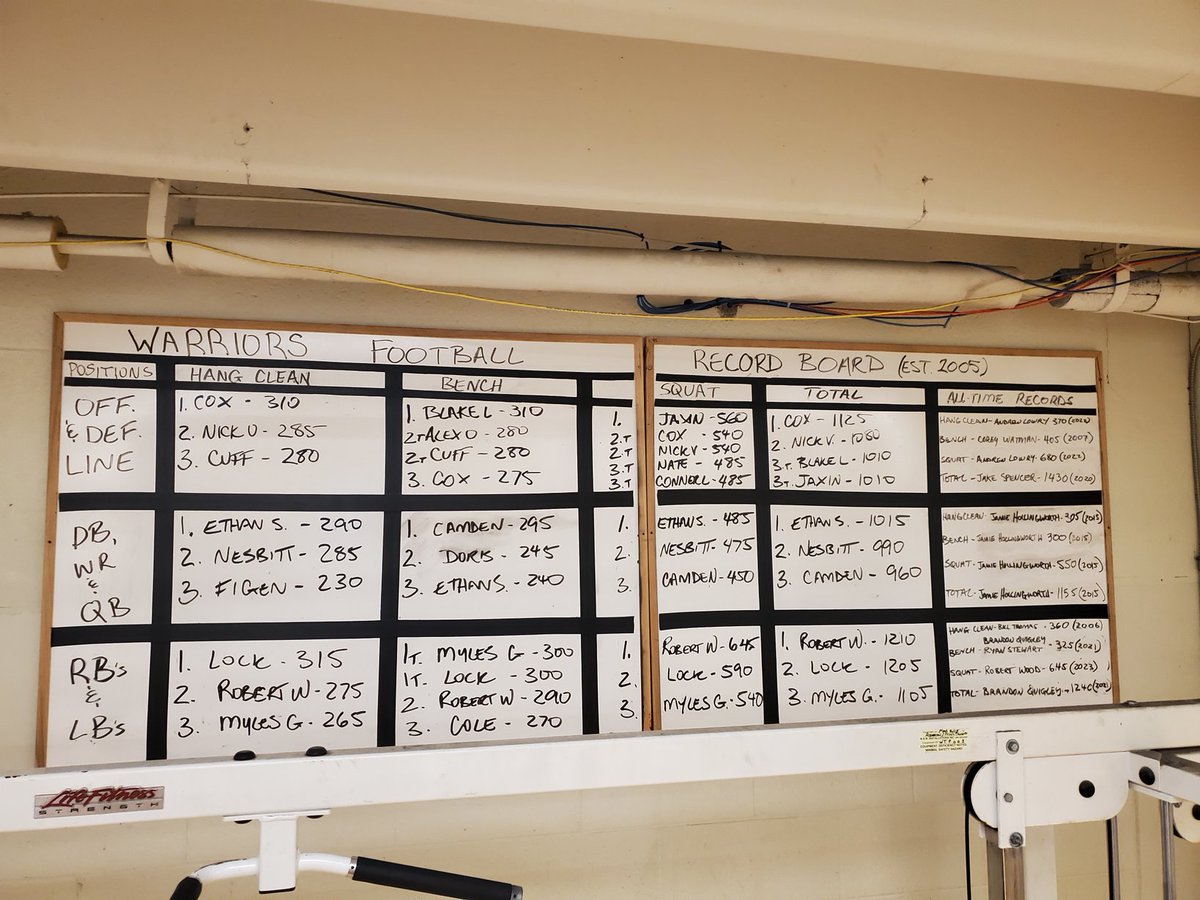 WARRIORS FOOTBALL RECORD BOARD (EST. 2005)
POSITIONS HANG CLEAN BENCH SQUAT TOTAL ALL-TIME RECORDS
OFF.
& DEF.
LINE
1. COX - 310
2. NICK V - 285
3. CUFF - 280
1. BLAKE L - 310
2T ALEX O - 280
2T CUFF - 280
3. COX - 275
1. JAXIN - 560
2.T COX - 540
2.T NICK V - 540
3.T NATE - 485
3.T CONNELL - 485
1. COX - 1125
2. NICK V. - 1080
3.T. BLAKE L - 1010
3.T. JAXIN - 1010
HANG CLEAN - ANDREW LOWRY 370
BENCH - COREY WATMAN - 405 (2007)
SQUAT - ANDREW LOWRY - 680 (2022)
TOTAL - JAKE SPENCER - 1430 (2020)
DB,
WR
&
QB
1. ETHAN S. - 290
2. NESBITT - 285
3. FIGEN - 230
1. CAMDEN - 295
2. DORIS - 245
3. ETHAN S. - 240
1. ETHAN S. - 485
2. NESBITT - 475
3. CAMDEN - 450
1. ETHAN S. - 1015
2. NESBITT - 990
3. CAMDEN - 960
HANG CLEAN - JAMIE HOLLINGWORTH - 305 (2015)
BENCH - JAMIE HOLLINGWORTH 300 (2015)
SQUAT - JAMIE HOLLINGWORTH - 550 (2015)
TOTAL - JAMIE HOLLINGWORTH - 1155 (2015)
RB's
&
LB's
1. LOCK - 315
2. ROBERT W - 275
3. MYLES G - 265
1T. MYLES G - 300
1T. LOCK - 300
2. ROBERT W - 290
3. COLE - 270
1. ROBERT W - 645
2. LOCK - 590
3. MYLES G. - 540
1. ROBERT W. - 1210
2. LOCK - 1205
3. MYLES G. - 1105
HANG CLEAN - BILL THOMAS - 360 (2006)
BRANDON QUIGLEY
BENCH - RYAN STEWART - 325 (2021)
SQUAT - ROBERT WOOD - 645 (2023)
TOTAL - BRANDON QUIGLEY - 1240
Life Fitness
STRENGTH